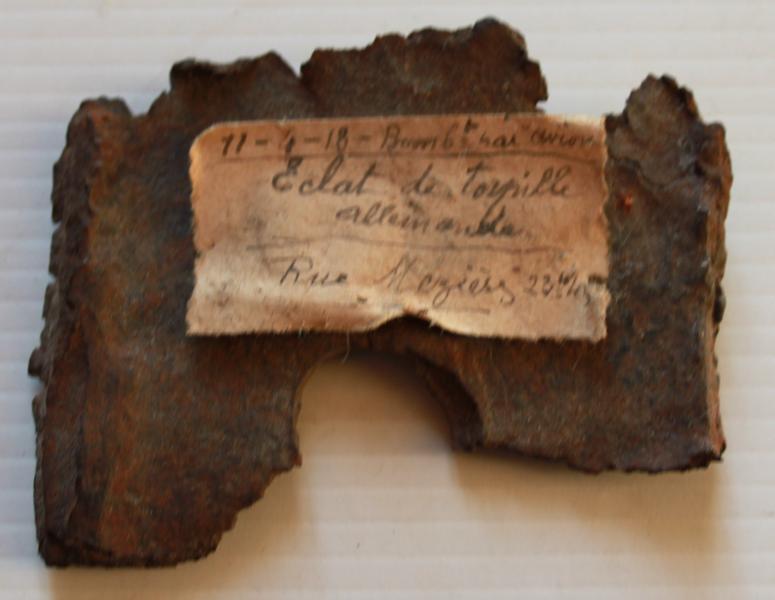 11-4-18 - Bombt par avion
Eclat de torpille
allemande
Rue Mézières 22h